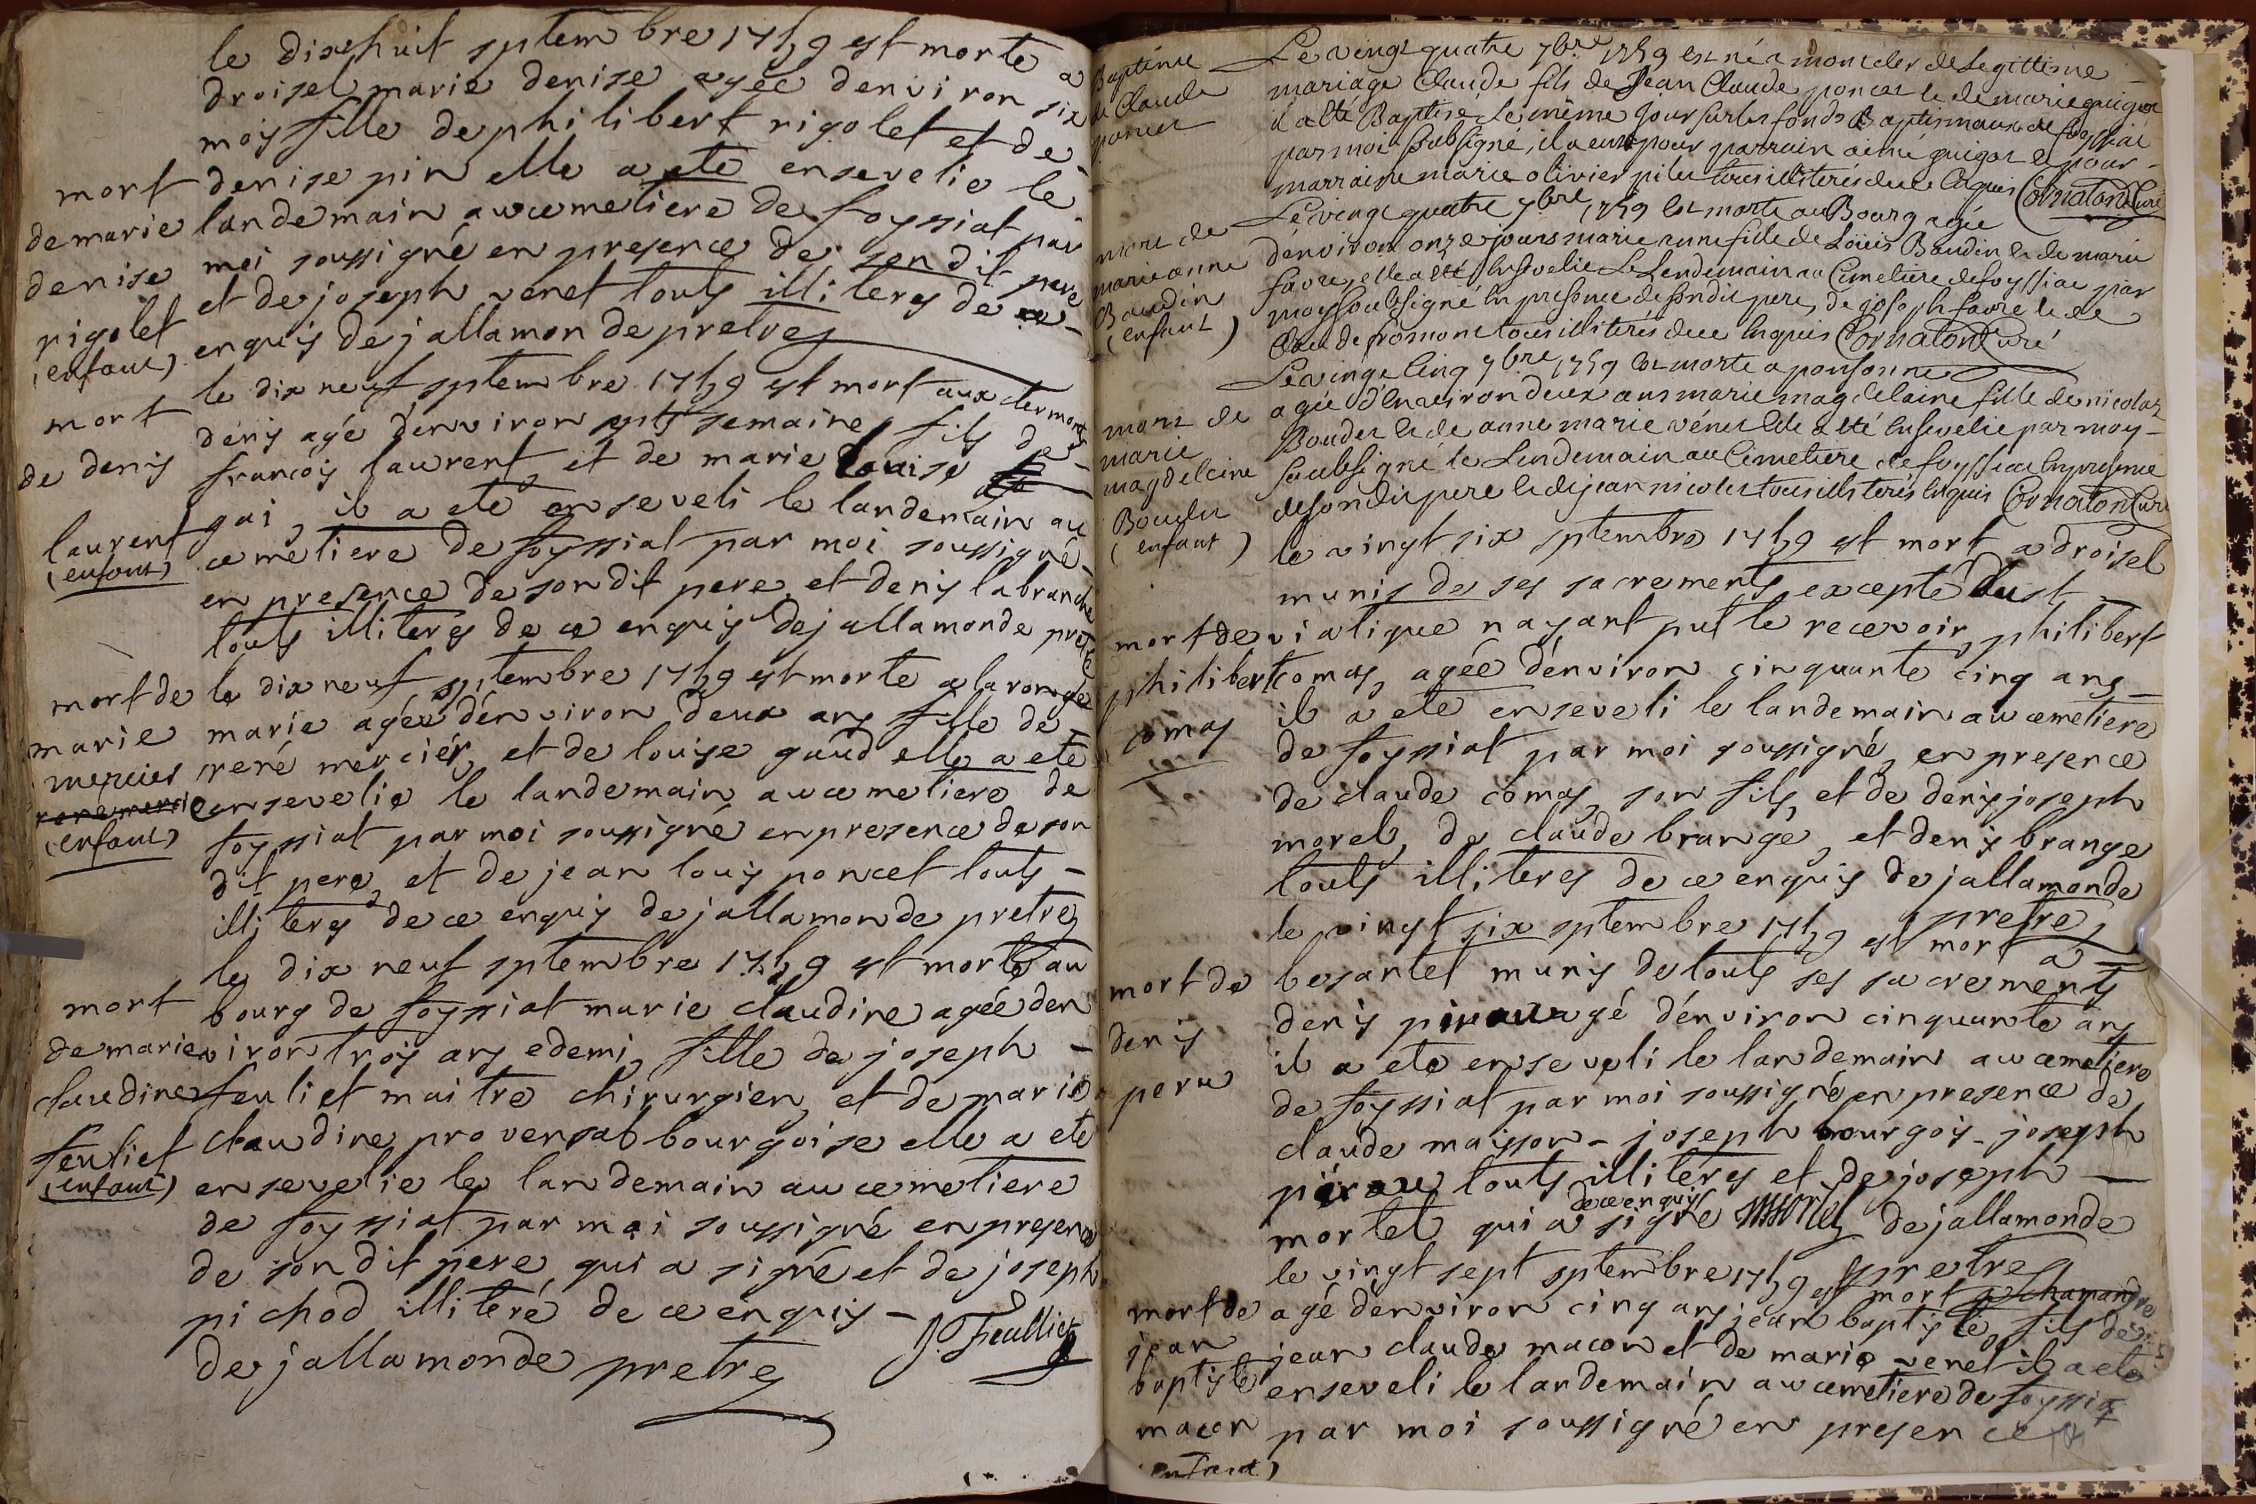 le dixhuit septembre 1759 est morte a
droisel marie denise agée denviron six
moys fille de philibert rigolet et de
mort
denise pin elle a eté ensevelie le
de marie
landemain au cemetiere de foyssiat par
denise
moi soussigné en presence de son dit pere
rigolet
et de joseph venet touts illiterés de ce
(enfant)
enquis dejallamonde pretre
le dix neuf septembre 1759 est mort aux clermonts
mort
denis agé d'environ sept semaine fils de
de denis
francois laurent et de marie Louise
laurent
gai, il a eté enseveli le landemain au
(enfant)
cemetiere de foyssiat par moi soussigné
en presence de son dit pere et denis labranche
touts illiterés de ce enquis dejallamonde pretre
mort de
le dix neuf septembre 1759 est morte a laronge
marie
marie agée d'environ deux ans fille de
mercier
rené mercier, et de louise gaud elle a eté
ensevelie le landemain au cemetiere de
(enfant)
foyssiat par moi soussigné en presence de son
dit pere, et de jean louis poncet touts
illiterés de ce enquis dejallamonde pretre
le dix neuf septembre 1759 est morte au
mort
bourg de foyssiat marie claudine agée den
de marie
viron trois ans edemi, fille de joseph
claudine
feuliet maitre chirurgien, et de marie
feuliet
claudine provensal bourgoise elle a eté
(enfant)
ensevelie le landemain au cemetiere
de foyssiat par moi soussigné en presence
de son dit pere qui a signé et de joseph
pichod illiteré de ce enquis
J. Feulliet
dejallamonde pretre
Baptême
de Claude
poncet
Le vingt quatre 7bre 1759 est né a montcler de Legittime
mariage Claude fils de Jean Claude poncet et de marie guigot
il a été Baptisé le même Jour sur les fonds Baptismaux de foyssiat
par moi soubsigné, il a eu pour parrain aimé guigot et pour
marraine marie olivier pilu tous illiterés de ce Enquis Cornaton Curé
Le vingt quatre 7bre 1759 est morte au Bourg agée
mort de
marie anne
Baudin
(enfant)
d'environ onze jours marie anne fille de Loüis Baudin et de marie
favre, elle a été Ensevelie Le Lendemain au Cimetiere de foyssiat par
moy soubsigné En presence de son dit pere, de joseph favre et de
Claude fromont tous illiterés de ce Enquis Cornaton Curé
Le vingt Cinq 7bre 1759 est morte a ponsonne
mort de
marie
magdelaine
Boudet
(enfant)
agée d'Environ deux ans marie magdelaine fille de nicolas
Boudet et de anne marie vénet Elle a été Ensevelie par moy
soubsigné le Lendemain au Cimetiere de foyssiat En presence
de son dit pere et de jean nicolet tous illiterés Enquis Cornaton Curé
le vingt six septembre 1759 est mort a droisel
munis de ses sacrements excepté du st
mort de
viatique nayant put le recevoir, philibert
philibert
comas, agée d'environ cinquante cinq ans
comas
il a eté enseveli le landemain au cemetiere
de foyssiat par moi soussigné, en presence
de claude comas, son fils, et de denis joseph
morel, de claude brangé, et denis brange
touts illiterés de ce enquis dejallamonde
pretre
le vingt six septembre 1759 est mort a
mort de
besantet munis de touts ses sacrements
denis
denis pirou agé d'environ cinquante ans
peru
il a eté enseveli le landemain au cemetiere
de foyssiat par moi soussigné en presence de
claude maisson - joseph bourgois - joseph
pirou touts illiterés et de joseph
de ce enquis
mortet qui a signé mortet dejallamonde
pretre
le vingt sept septembre 1759 est mort a chamandre
mort de
agé d'environ cinq ans jean baptiste, fils de
jean
jean claude macon et de marie venet il a eté
baptiste
enseveli le landemain au cemetiere de foyssiat
macon
par moi soussigné en presence
(enfant)